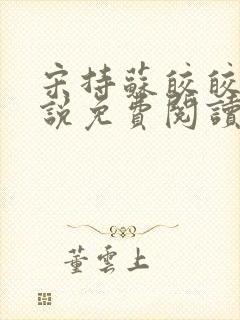 宋持蘇皎皎
說免費閱讀
董雲上